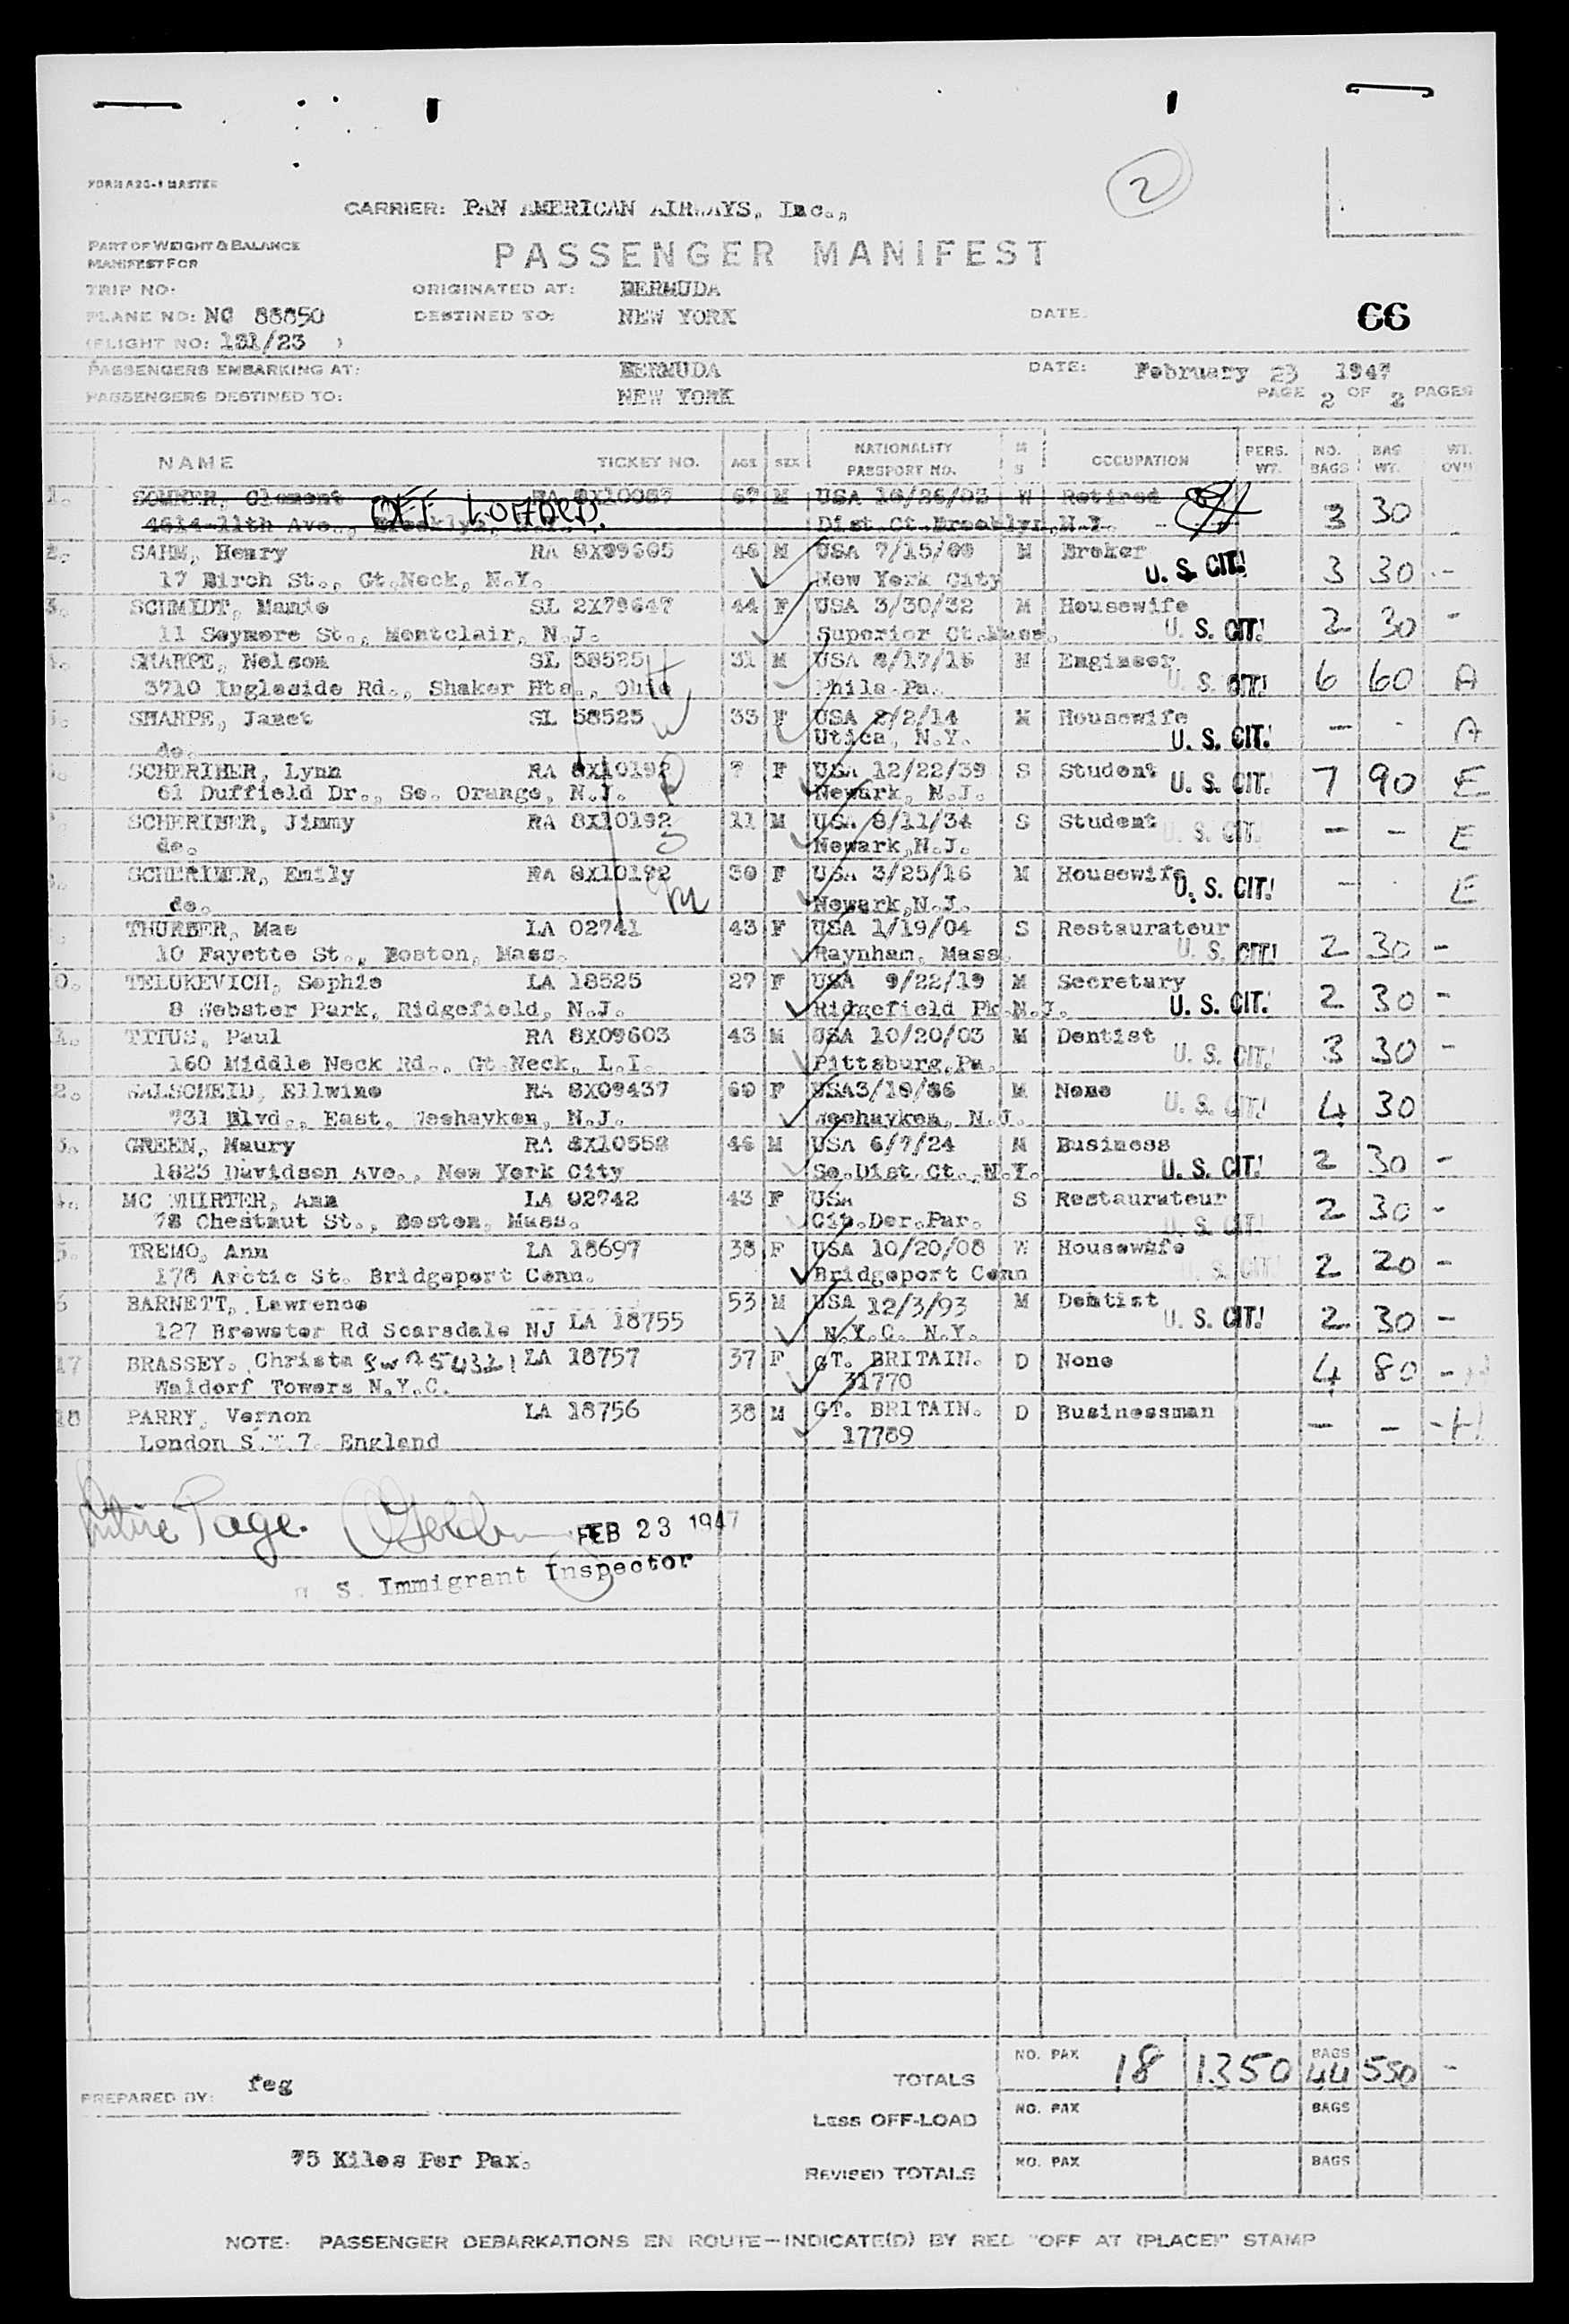 FORM A20-1 MASTER
2
CARRIER: PAN AMERICAN AIRWAYS, Inc.,
PART OF WEIGHT & BALANCE
MANIFEST FOR
PASSENGER MANIFEST
TRIP NO. ORIGINATED AT: BERMUDA
PLANE NO: NC 88850 DESTINED TO: NEW YORK DATE. 66
(FLIGHT NO: 131/23 )
PASSENGERS EMBARKING AT: BERMUDA DATE: February 23 1947
PASSENGERS DESTINED TO: NEW YORK PAGE 2 OF 2 PAGES
NAME TICKET NO. AGE SEX NATIONALITY PASSPORT NO. M S OCCUPATION PERS. WT. NO. BAGS BAG WT. WT.
1. SOMMER, Clement RA 8X10087 67 M USA 10/26/03 W Retired 3 30
4614-11th Ave., Brooklyn, OFF LOADED. Dist.Ct.Brooklyn,N.Y.
2. SAHM, Henry RA 8X09605 46 M USA 7/15/00 M Broker U. S. CIT! 3 30 -
17 Birch St., Gt.Neck, N.Y. New York City
3. SCHMIDT, Mamie SL 2X79647 44 F USA 3/30/32 M Housewife U. S. CIT! 2 30 -
11 Seymore St., Montclair, N.J. Superior Ct.Mass.
SHARPE, Nelson SL 58525 31 M USA 8/17/15 M Engineer U. S. CIT! 6 60 A
3710 Ingleside Rd., Shaker Hts., Ohio Phila.Pa.
SHARPE, Janet SL 58525 33 F USA 2/2/14 M Housewife U. S. CIT! - - A
do. Utica, N.Y.
SCHERIBER, Lynn RA 8X10192 7 F USA 12/22/39 S Student U. S. CIT! 7 90 E
61 Duffield Dr., So. Orange, N.J. Newark, N.J.
SCHERIBER, Jimmy RA 8X10192 11 M USA 8/11/34 S Student U. S. CIT! - - E
do. Newark,N.J.
SCHERIBER, Emily RA 8X10192 30 F USA 3/25/16 M Housewife U. S. CIT! - - E
do. Newark,N.J.
THURBER, Mae LA 02741 43 F USA 1/19/04 S Restaurateur U. S. CIT! 2 30 -
10 Fayette St., Boston, Mass. Raynham, Mass.
0. TELUKEVICH, Sophie LA 18525 27 F USA 9/22/19 M Secretary U. S. CIT! 2 30 -
8 Webster Park, Ridgefield, N.J. Ridgefield Pk.N.J.
TITUS, Paul RA 8X09603 43 M USA 10/20/03 M Dentist U. S. CIT! 3 30 -
160 Middle Neck Rd., Gt.Neck, L.I. Pittsburg,Pa.
2. WALSCHEID, Ellwine RA 8X09437 60 F USA3/18/86 M None U. S. CIT! 4 30
731 Blvd., East, Weehayken, N.J. Weehayken, N.J.
3. GREEN, Maury RA 8X10558 46 M USA 6/7/24 M Business U. S. CIT! 2 30 -
1823 Davidson Ave., New York City So.Dist.Ct.,N.Y.
4. MC WHIRTER, Ann LA 02742 43 F USA S Restaurateur U. S. CIT! 2 30 -
78 Chestnut St., Boston, Mass. Cit.Der.Par.
5. TREMO, Ann LA 18697 38 F USA 10/20/08 W Housewife U. S. CIT! 2 20 -
178 Arctic St. Bridgeport Conn. Bridgeport Conn
6 BARNETT, Lawrence LA 18755 53 M USA 12/3/93 M Dentist U. S. CIT! 2 30 -
127 Brewster Rd Scarsdale NJ N.Y.C. N.Y.
17 BRASSEY. Christa LA 18757 37 F GT. BRITAIN. D None 4 80 - H
Waldorf Towers N.Y.C. 31770
18 PARRY, Vernon LA 18756 38 M GT. BRITAIN. D Businessman - - - H
London S.W.7. England 17789
Entire Page. FEB 23 1947
U S. Immigrant Inspector
TOTALS NO. PAX 18 1350 BAGS 44 550 -
PREPARED BY: feg
LESS OFF-LOAD NO. PAX BAGS
75 Kilos Per Pax.
REVISED TOTALS NO. PAX BAGS
NOTE: PASSENGER DEBARKATIONS EN ROUTE—INDICATE(D) BY RED "OFF AT (PLACE)" STAMP